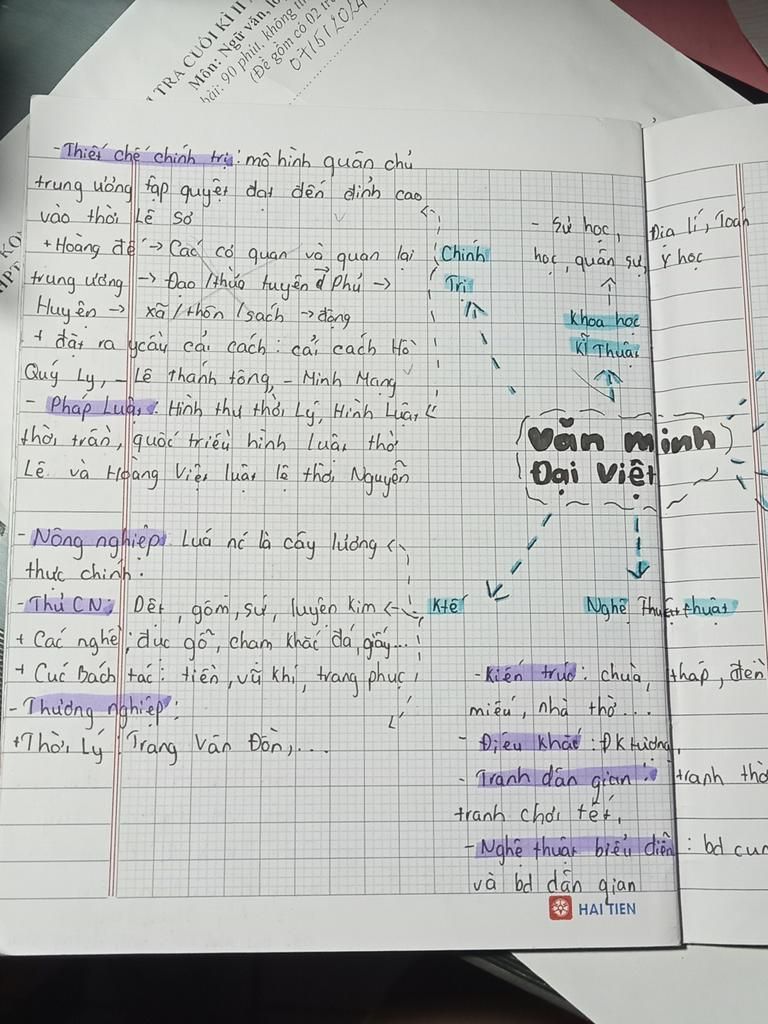 TRA CUỐI KÌ II
Môn: Ngữ văn, lớ
bài: 90 phút, không th
(Đề gồm có 02 tr
07/5/2024
- Thiết chế chính trị: mô hình quân chủ
trung ương tập quyết đạt đến đỉnh cao
vào thời Lê sơ
+ Hoàng đế → Các cơ quan và quan lại
trung ương → Đạo /thừa tuyên → Phủ →
Huyện → xã /thôn /sách → động
+ đặt ra ycầu cải cách: cải cách Hồ
Quý Ly, - Lê thánh tông, - Minh Mạng
- Pháp Luật: Hình thư thời Lý, Hình Luật
thời trần, quốc triều hình luật thời
Lê và Hoàng Việt luật lệ thời Nguyễn
- Nông nghiệp: Luá nc là cây lương
thực chính.
- Thủ CN: Dệt, gốm, sứ, luyện kim
+ Các nghề: đục gỗ, chạm khắc đá, giấy...
+ Cục Bách tác: tiền, vũ khí, trang phục
- Thương nghiệp:
+ Thời Lý: Trang Vân Đồn,...
Chính
Trị
- Sử học, Địa lí, Toán
học, quân sự, y học
Khoa học
Kĩ Thuật
Văn minh
Đại Việt
Ktế
Nghệ Thuật thuật
- Kiến trúc: chùa, tháp, đền
miếu, nhà thờ...
- Điêu khắc: ĐK tượng,
- Tranh dân gian: tranh thờ
tranh chơi tết,
- Nghệ thuật biểu diễn: bd cun
và bd dân gian
HAI TIEN